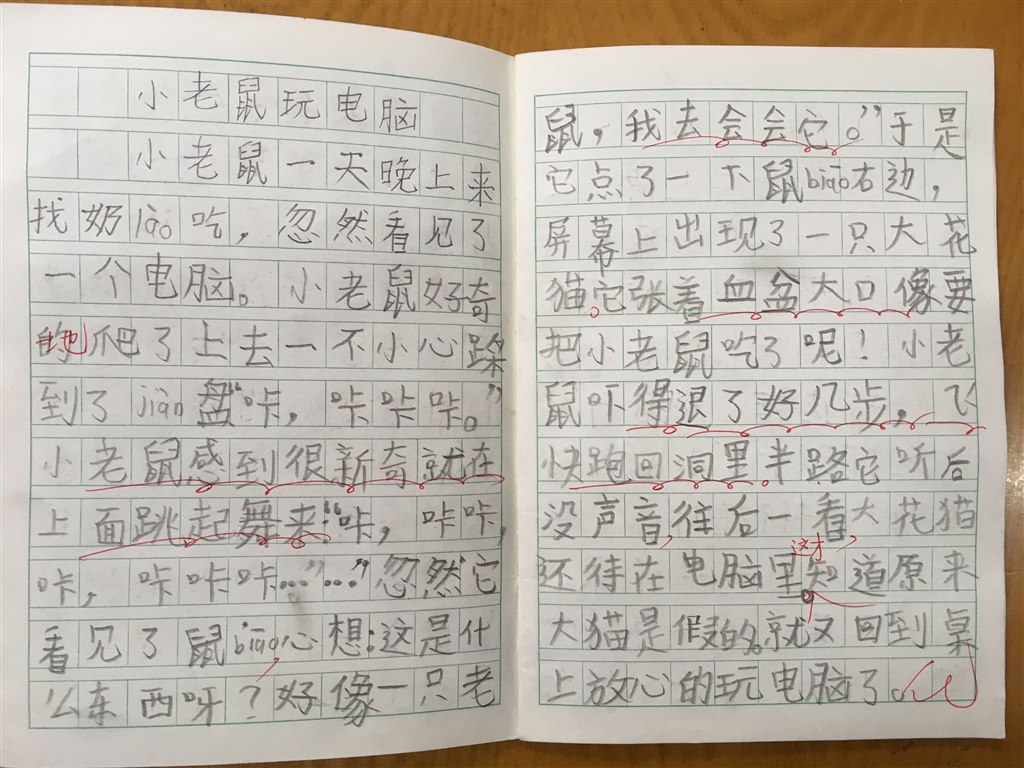 小老鼠玩电脑
小老鼠一天晚上来
找奶lào吃，忽然看见了
一个电脑。小老鼠好奇
地爬了上去一不小心跺
到了jiàn盘“咔，咔咔咔。”
小老鼠感到很新奇就在
上面跳起舞来“咔，咔咔，
咔，咔咔咔…”…”忽然它
看见了鼠biāo心想：这是什
么东西呀？好像一只老
鼠，我去会会它。”于是
它点了一下鼠biāo右边，
屏幕上出现了一只大花
猫。它张着血盆大口像要
把小老鼠吃了呢！小老
鼠吓得退了好几步，飞
快跑回洞里。半路它听后
没声音，往后一看，大花猫
还待在电脑里。这才知道原来
大猫是假的。就又回到桌
上放心的玩电脑了。